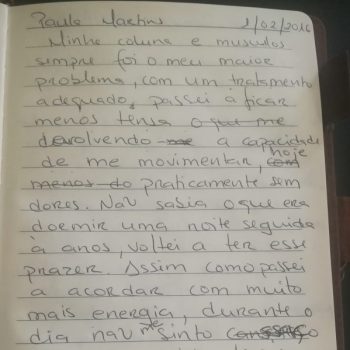 Paula Martins 1/02/2016
Minha coluna e musculos
sempre foi o meu maior
problema, com um tratamento
adequado, passei a ficar
menos tensa o que me
devolvendo me a capacidade
de me movimentar, hoje
menos do praticamente sem
dores. Não sabia o que era
dormir uma noite seguida
à anos, voltei a ter esse
prazer. Assim como passei
a acordar com muito
mais energia, durante o
dia não me sinto cansaço